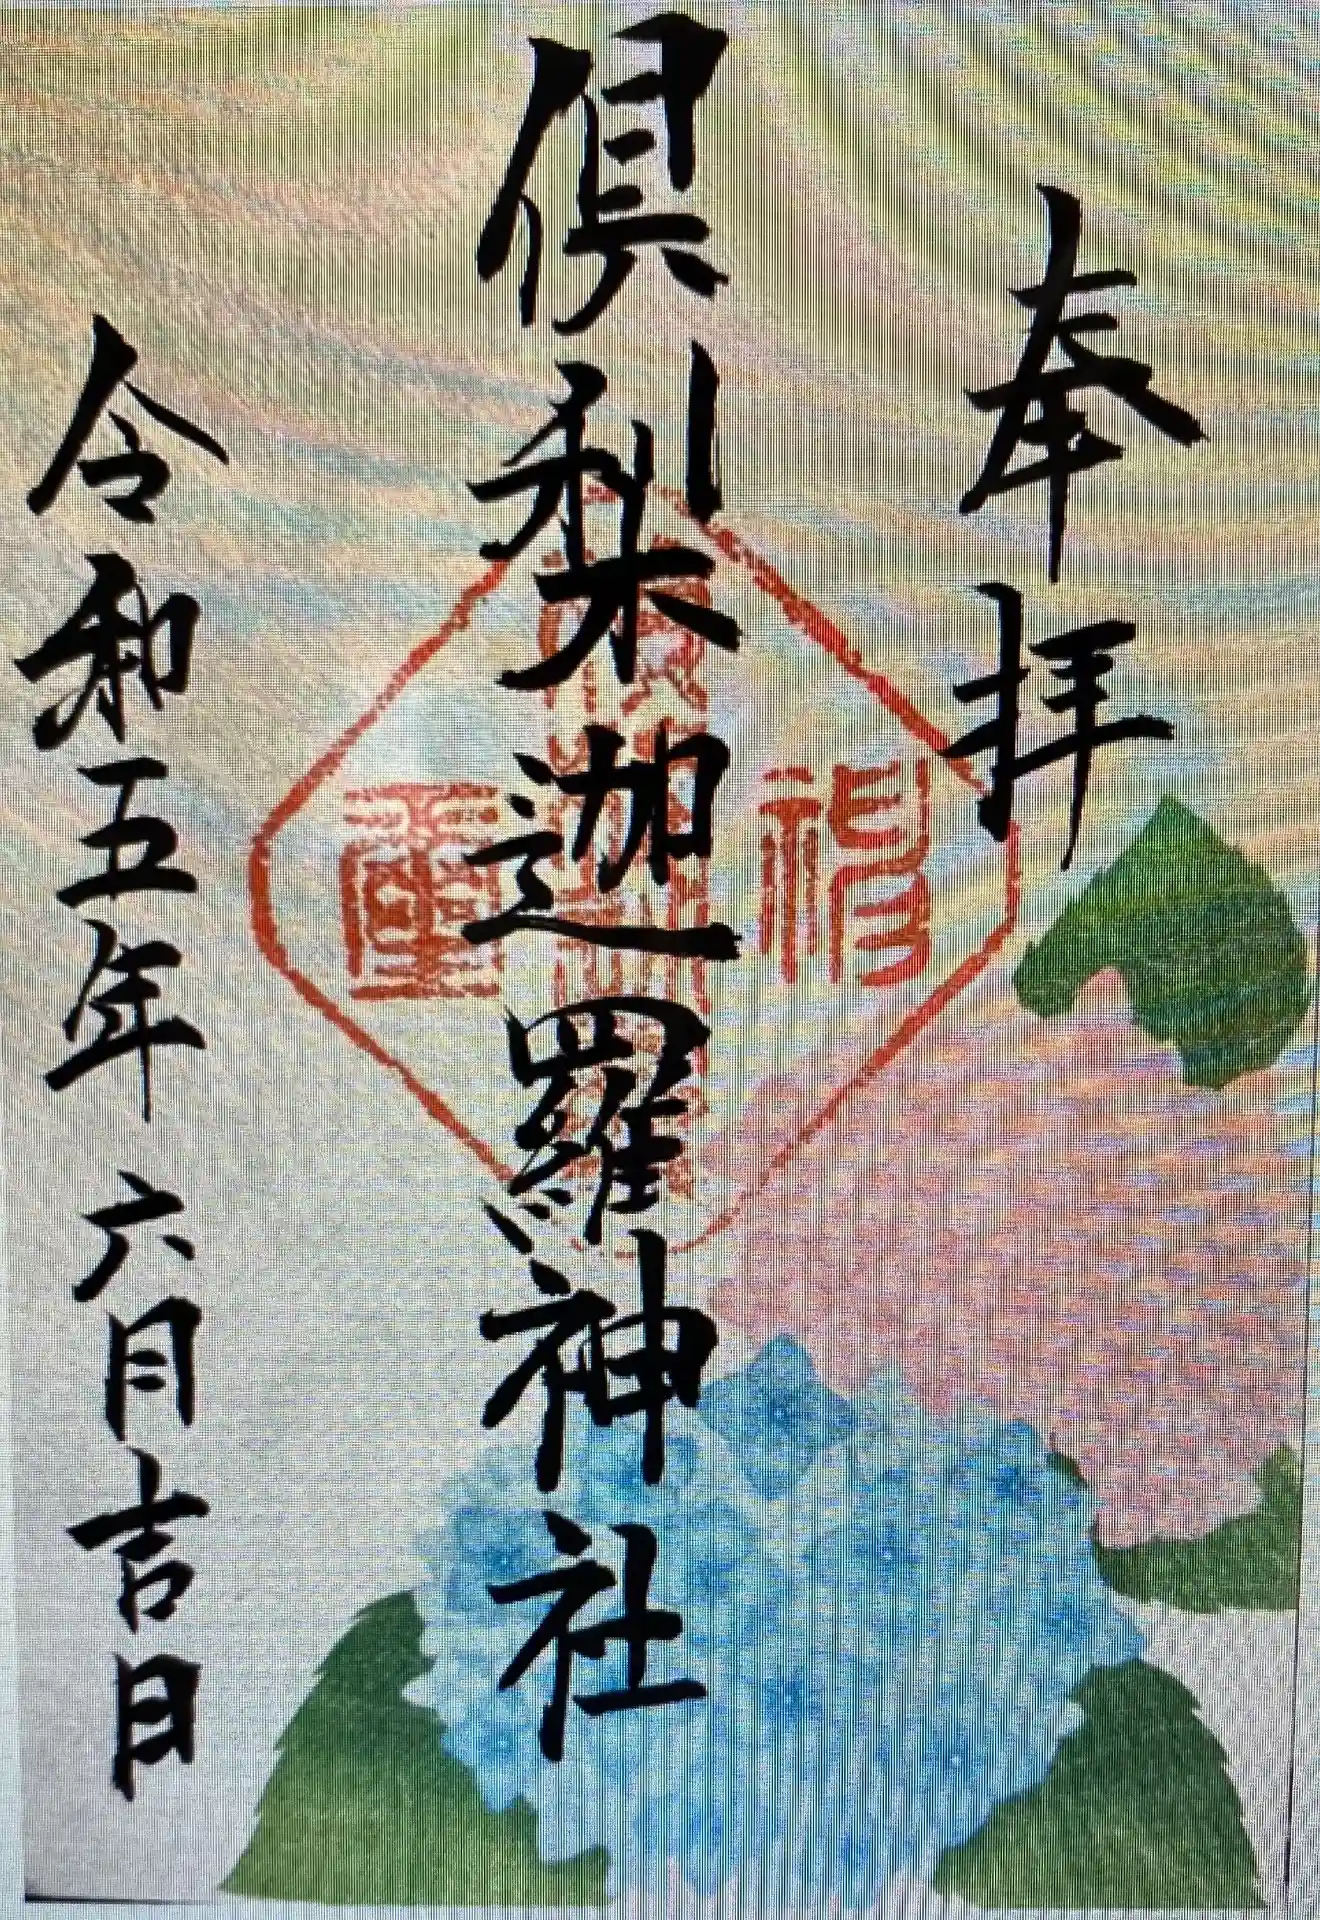 奉拝
俱梨迦羅神社
令和五年六月吉日